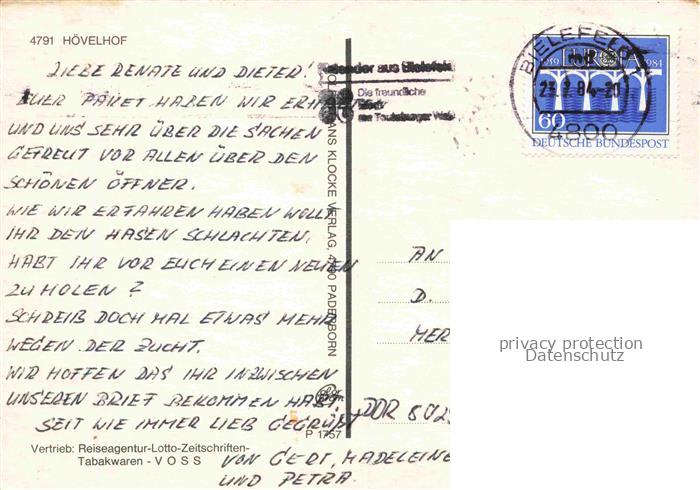 4791 HÖVELHOF
LIEBE RENATE UND DIETER!
EUER PAKET HABEN WIR ERHALTEN
UND UNS SEHR ÜBER DIE SACHEN
GEFREUT VOR ALLEN ÜBER DEN
SCHÖNEN ÖFFNER.
WIE WIR ERFAHREN HABEN WOLLT
IHR DEN HASEN SCHLACHTEN.
HABT IHR VOR EUCH EINEN NEUEN
ZU HOLEN?
SCHREIB DOCH MAL ETWAS MEHR
WEGEN DER ZUCHT.
WIR HOFFEN DAS IHR INZWISCHEN
UNSEREN BRIEF BEKOMMEN HABT.
SEIT WIE IMMER LIEB GEGRÜßT
VON GERT, MADELEINE
UND PETRA.
Vertrieb: Reiseagentur-Lotto-Zeitschriften-
Tabakwaren - VOSS
HANS KLOCKE VERLAG, 4790 PADERBORN
P 1757
aus Bielefeld
Die freundliche
Stadt
am Teutoburger Wald
BIELEFELD
23.7.84-20
4800
EUROPA
1984
60
DEUTSCHE BUNDESPOST
AN
D.
MER
DDR 802
privacy protection
Datenschutz